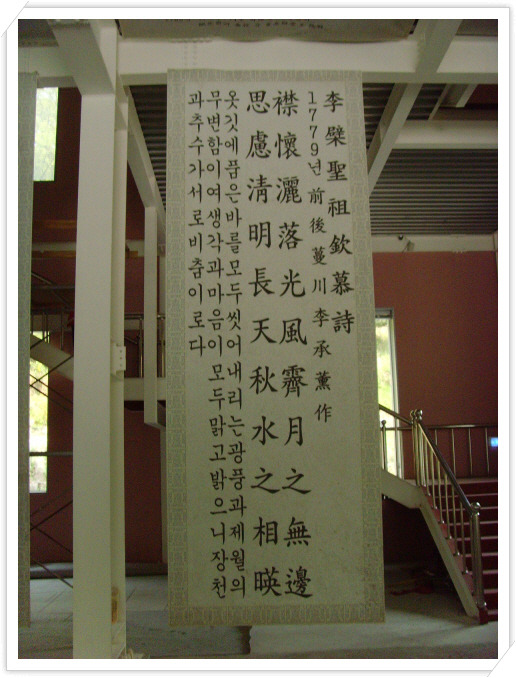 李檗聖祖欽慕詩
1779년 前後 蔓川 李承薰 作
襟懷灑落光風霽月之無邊
思慮淸明長天秋水之相暎
옷깃에 품은 바를 모두 씻어내리는 광풍과 제월의
무변함이여 생각과 마음이 모두 맑고 밝으니 장천
과 추수가 서로 비춤이로다